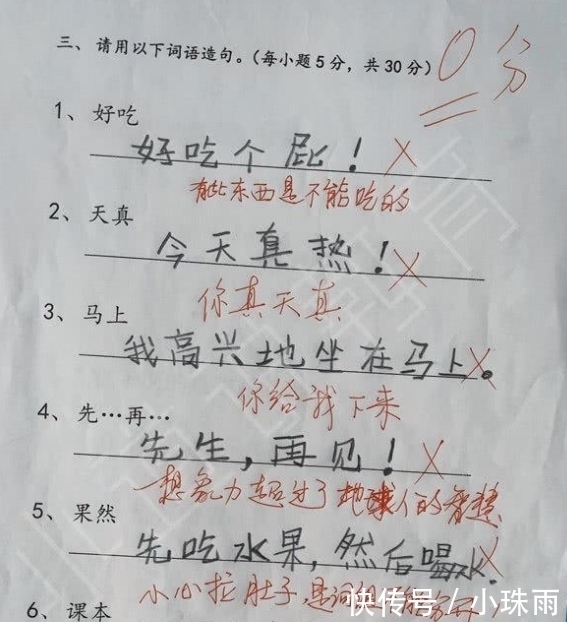 三、请用以下词语造句。(每小题5分，共30分) 0分
1、好吃
好吃个屁！
有些东西是不能吃的
2、天真
今天真热！
你真天真
3、马上
我高兴地坐在马上。
你给我下来
4、先…再…
先生，再见！
想象力超过了地球人的智慧
5、果然
先吃水果，然后喝水.
小心拉肚子,是词组
6、课本
快传号／小珠雨